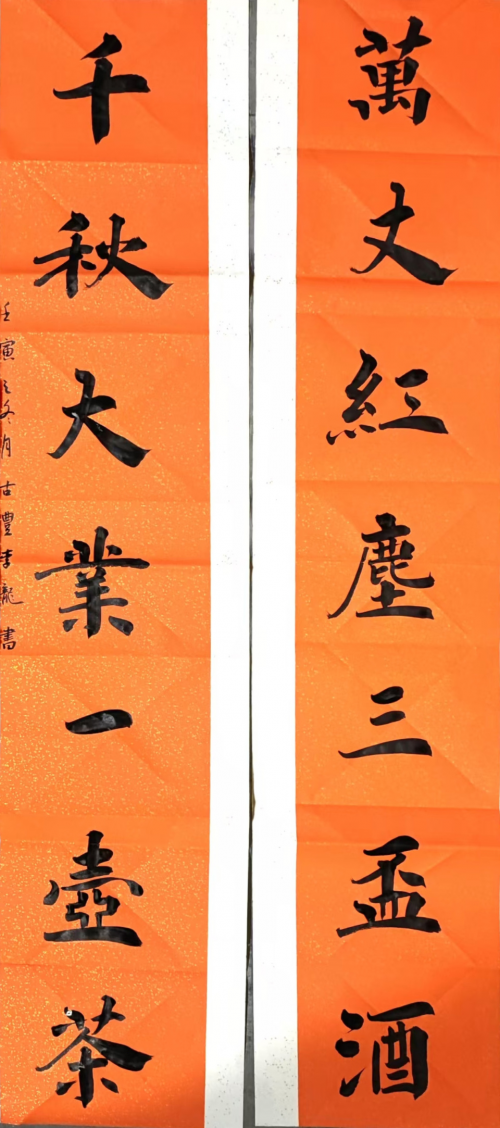 萬丈紅塵三盃酒
千秋大業一壺茶
壬寅之冬月古豐李龍書